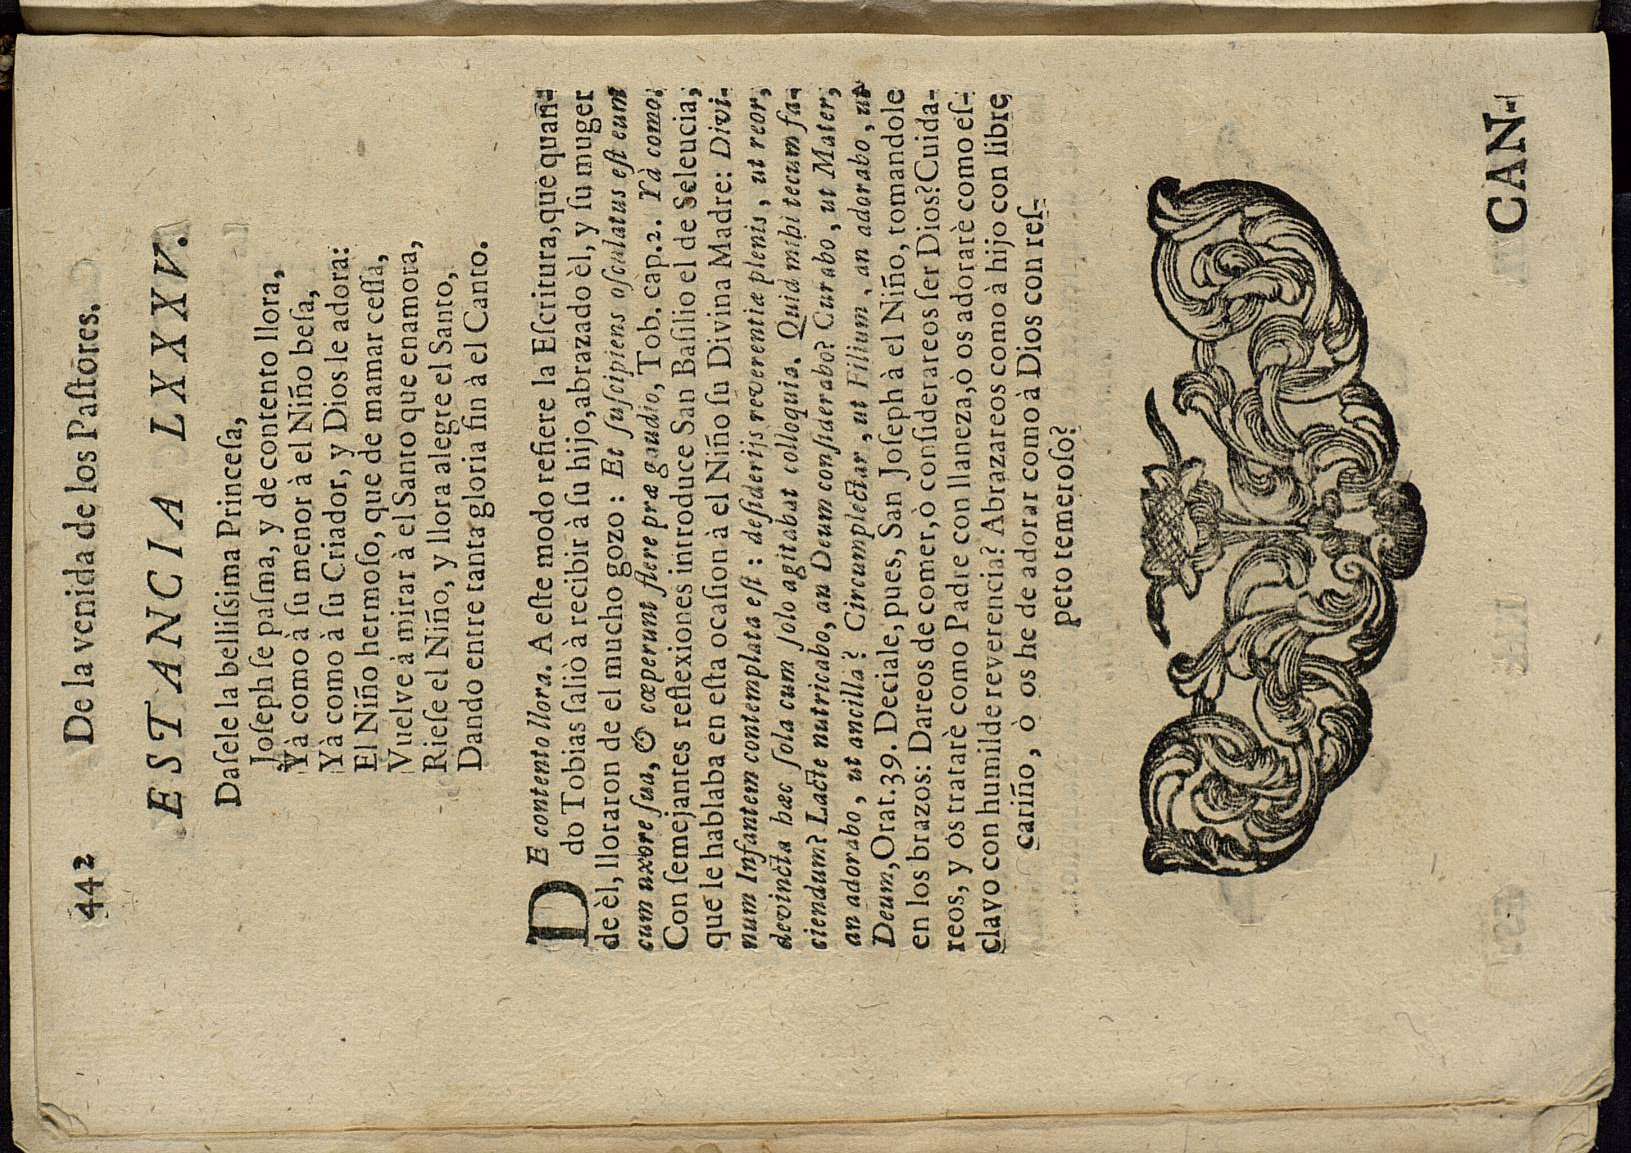 442 De la venida de los Paſtores.
ESTANCIA LXXV.
Daſele la belliſsima Princeſa,
Joſeph ſe paſma, y de contento llora,
Yà como à ſu menor à el Niño beſa,
Yà como à ſu Criador, y Dios le adora:
El Niño hermoſo, que de mamar ceſſa,
Vuelve à mirar à el Santo que enamora,
Rieſe el Niño, y llora alegre el Santo,
Dando entre tanta gloria fin à el Canto.
DE contento llora. A eſte modo refiere la Eſcritura, que quan-
do Tobias ſaliò à recibir à ſu hijo, abrazado èl, y ſu muger
de èl, lloraron de el mucho gozo: Et ſuſcipiens oſculatus eſt eum
cum uxore ſua, & cœperunt flere præ gaudio, Tob. cap. 2. Yà como.
Con ſemejantes reflexiones introduce San Baſilio el de Seleucia,
que le hablaba en eſta ocaſion à el Niño ſu Divina Madre: Divi-
num Infantem contemplata eſt: deſiderijs reverentiæ plenis, ut reor,
devincta hæc ſola cum ſolo agitabat colloquia. Quid mihi tecum fa-
ciendum? Lacte nutricabo, an Deum conſiderabo? Curabo, ut Mater,
an adorabo, ut ancilla? Circumplectar, ut Filium, an adorabo, ut
Deum, Orat. 39. Deciale, pues, San Joſeph à el Niño, tomandole
en los brazos: Dareos de comer, ò conſiderareos ſer Dios? Cuida-
reos, y os tratarè como Padre con llaneza, ò os adorarè como eſ-
clavo con humilde reverencia? Abrazareos como à hijo con libre
cariño, ò os he de adorar como à Dios con reſ-
peto temeroſo?
CAN-